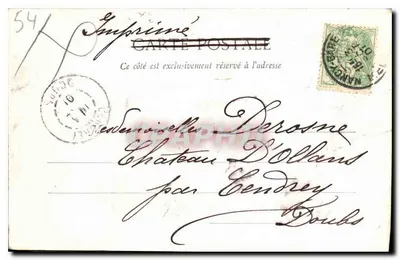 54
Imprimé
CARTE POSTALE
Ce côté est exclusivement réservé à l'adresse
Mesdemoiselles Derosne
Chateau D'Ollans
par Cendrey
Doubs